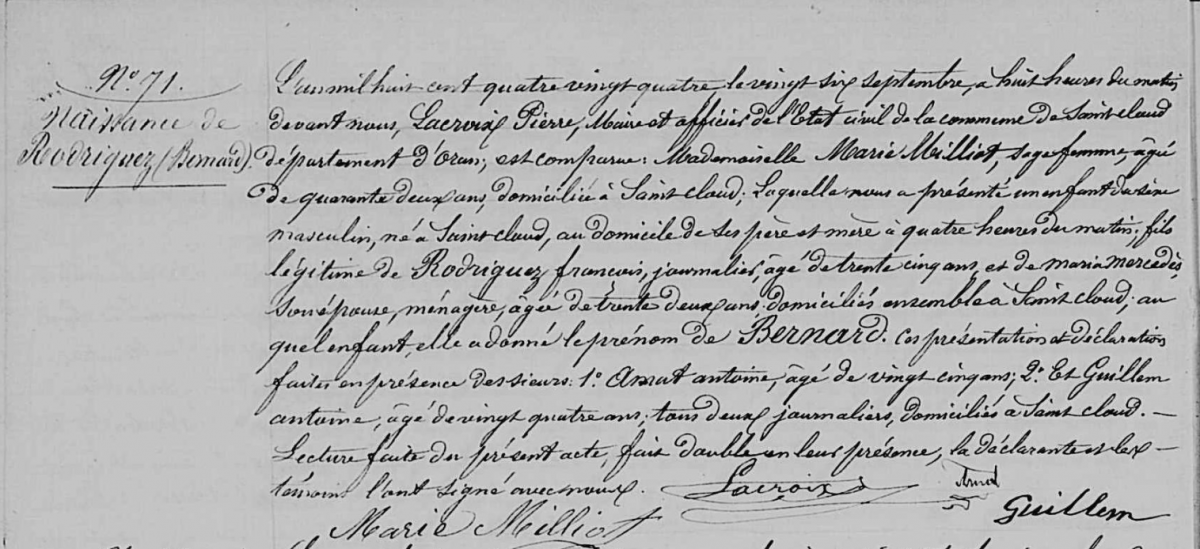 N° 71.
Naissance de
Rodriguez (Bernard).
L'an mil huit cent quatre vingt quatre le vingt six septembre, à huit heures du matin
devant nous, Lacroix Pierre, Maire et officier de l'Etat civil de la commune de Saint cloud
département d'Oran; est comparue: Mademoiselle Marie Milliot, sage femme, âgée
de quarante deux ans, domiciliée à Saint cloud; Laquelle nous a présenté un enfant du sexe
masculin, né à Saint cloud, au domicile de ses père et mère à quatre heures du matin; fils
légitime de Rodriguez françois, journalier, âgé de trente cinq ans, et de maria mercédès
son épouse, ménagère, âgée de trente deux ans; domiciliés ensemble à Saint cloud; au
quel enfant, elle a donné le prénom de Bernard. Ces présentation et déclaration
faites en présence des sieurs: 1° Amat antoine, âgé de vingt cinq ans; 2° Et Guillem
antoine, âgé de vingt quatre ans; tous deux journaliers, domiciliés à Saint cloud. —
Lecture faite du présent acte, fait double en leur présence, la déclarante et les —
témoins l'ont signé avec nous. Lacroix Amat
Marie Milliot Guillem